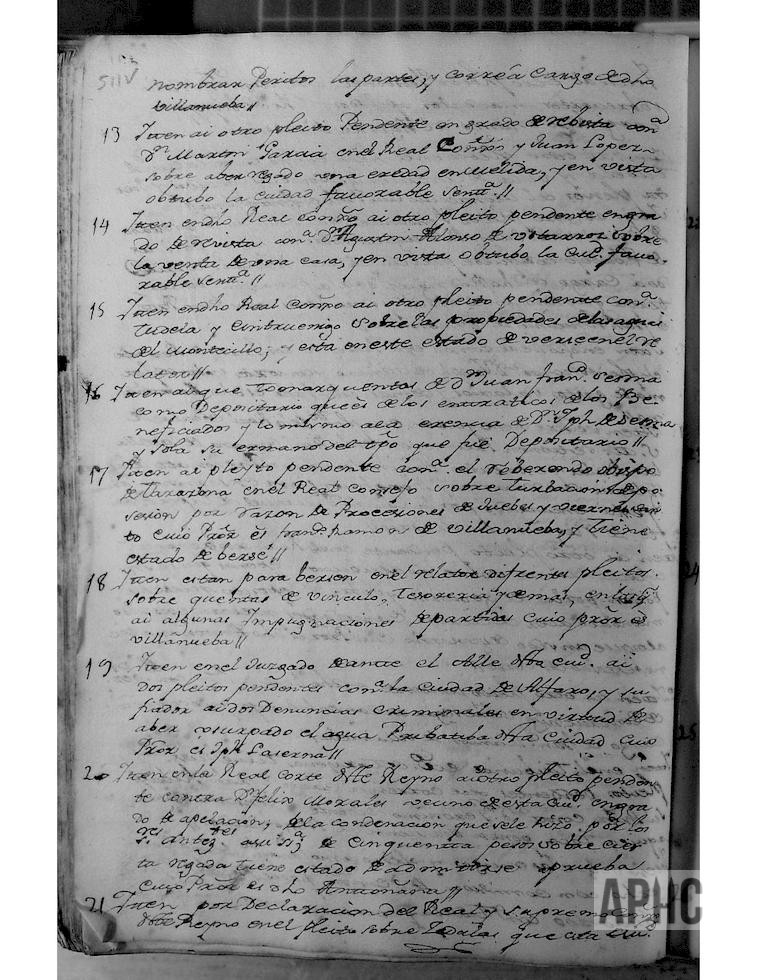 511v
nombrar Peritos las partes, y corre a Cargo de dho
Villanueba//
13 Iten ai otro pleito Pendente en grado de rebista conª
Dn Martin Garcia en el Real Conss.o y Juan Lopez
sobre aber regado una eredad en Melida, y en vista
obtubo la ciudad favorable sentª.//
14 Iten en dho Real Conss.o ai otro pleito pendente en gra
do de revista conª. Dn Agustin Alonso de sobre
la venta de una casa, y en vista obtubo la Ciud. favo
rable sentª.//
15 Iten en dho Real Conss.o ai otro pleito pendente conª.
Tudela y Cintruenigo sobre las propiedades de las aguas
del Montecillo; y esta en este estado de verse en el Re
lator//
16 Iten ai que tomar quentas de Dn Juan Franco. Sesma
como Depositario que es de los de los Be
neficiados y lo mismo a la erencia de Dn Jph de Sesma
y Sola su ermano del tpo que fue Depositario//
17 Iten ai pleyto pendente conª. el Reberendo obispo
de Tarazona en el Real Consejo sobre turbacion de po
sesion por razon de Procesiones de Juebes y viernes san
to cuio Pror es Franco. Ramon de Villanueba, y tiene
estado de berse//
18 Iten estan para berse en el relator difrentes pleitos.
sobre quentas de vinculo, Tesoreria y demas, en las qs
ai algunas Impugnaciones de partidas cuio pror es
Villanueba//
19 Iten en el Juzgado de ante el Alle desta Ciud. ai
dos pleitos pendentes conª. la Ciudad de Alfaro, y su
fiador ai dos Denuncias criminales en virtud de
aber usurpado el agua Probatiba desta Ciudad cuio
Pror es Jph Laserna//
20 Iten en la Real Corte deste Reyno ai otro pleito penden
te contra Dn Felix Morales vecino de esta Ciud. en gra
do de apelacion, de la condenacion que se le hizo por los
Ses. antezres. a su sª. de cinquenta pesos sobre cier
ta regada tiene estado de admitirse a prueba
Cuio Pror es dho Antoñana//
21 Iten por Declaracion del Real y Supremo Conss.o
deste Reyno en el pleito sobre que esta Ciud.
APHC